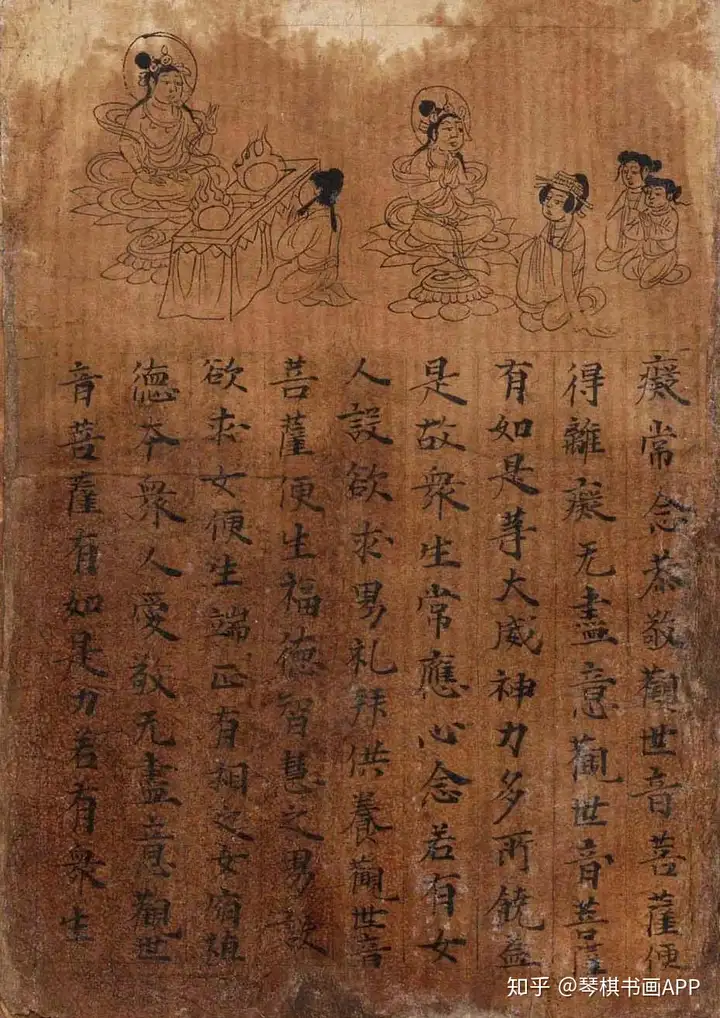 癡常念恭敬觀世音菩薩便
得離癡无盡意觀世音菩薩
有如是等大威神力多所饒益
是故衆生常應心念若有女
人設欲求男礼拜供養觀世音
菩薩便生福德智慧之男設
欲求女便生端正有相之女宿植
德本衆人愛敬无盡意觀世
音菩薩有如是力若有衆生
知乎 @琴棋书画APP